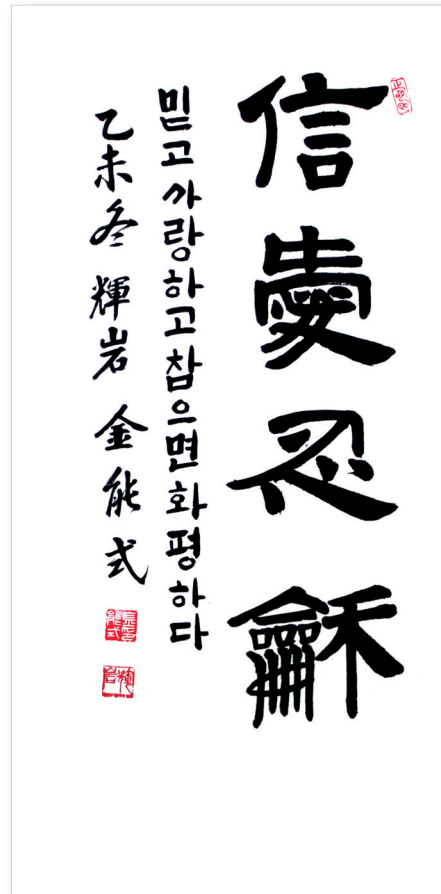 信愛忍龢
믿고 사랑하고 참으면 화평하다
乙未冬 輝岩 金能式